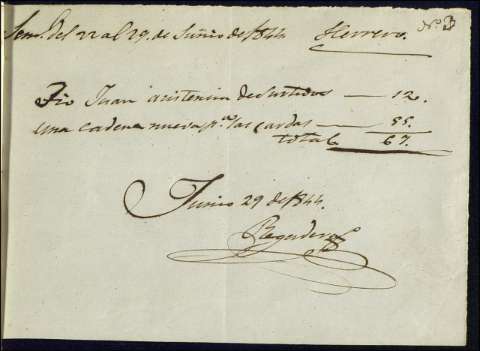 Nº 3
Semª del 22 al 29 de Junio de 1844 Herrero.
Tio Juan asistencia de surtidos — 12.
una cadena nueva pª las cardas — 55.
total 67.
Junio 29 de 1844.